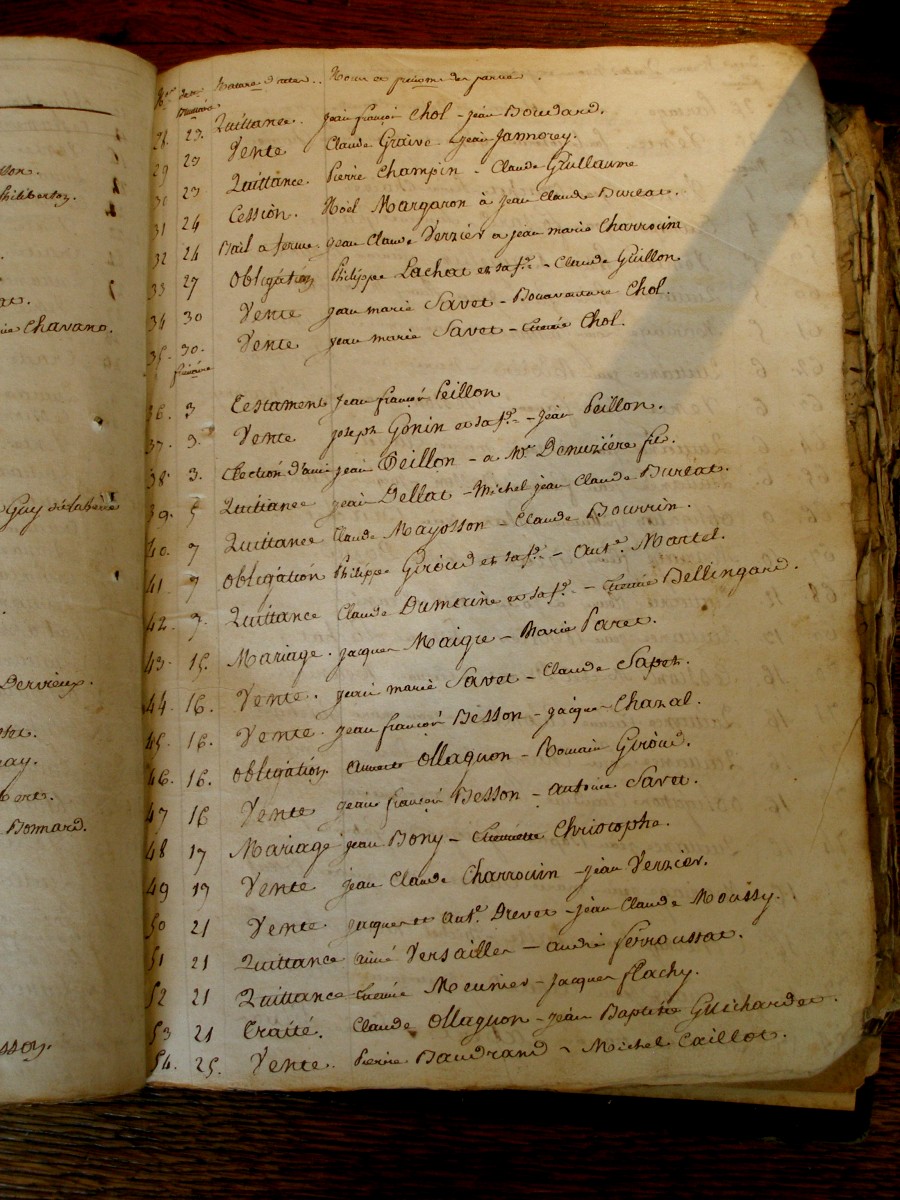 sson.
Philiberton.
at.
Chavano.
Guy
Dervieux.
sot.
nay.
bert.
Bonnard.
sson.
Nature d'actes. Noms et prénoms des parties.
minutes
28. 23. Quittance. jean françois Chol - jean Boudard.
29 23 Vente Claude Graive - jean Jamorey.
30 23 Quittance. Pierre Champin - Claude Guillaume
31 24 Cession. Noël Margaron à jean Claude Bureat.
32 24 Bail a ferme. jean Claude Verzier a jean marie Charrouin
33 27 Obligation Philippe Lachat et sa fe. - Claude Guillon
34 30 Vente jean marie Savet - Bonaventure Chol.
35. 30. Vente jean marie Savet - Etienne Chol.
fevrier
36. 3 Testament jean françois Peillon
37. 3. Vente joseph Gonin et sa fe. - jean Peillon.
38 3. Election d'ami jean Peillon - a Mr. Denuzière fils.
39. 5 Quittance jean Dellat - Michel jean Claude Bureat.
40. 7 Quittance Claude Mayosson - Claude Bourrin.
41. 7 Obligation Philippe Giroud et sa fe. - Ante. Martel.
42. 7. Quittance Claude Dumaine et sa fe. - Etienne Bellingard.
43. 15. Mariage. jacques Maigre - Marie Paret.
44. 16. Vente. jean marie Savet - Claude Sapet.
45. 16. Vente. jean françois Besson - jacques Chanal.
46. 16. Obligation. Ollagnon - Romain Giroud.
47 16 Vente jean françois Besson - antoine Savet.
48 17 Mariage jean Bony - Etiennette Christophe.
49 19 Vente jean Claude Charrouin - jean Verzier.
50 21 Vente jacques et Ante. Drevet - jean Claude Moussy.
51 21 Quittance aimé Versailles - andré ferroussat.
52 21 Quittance Etienne Meunier - jacques flachy.
53 21 Traité. Claude Ollagnon - jean Baptiste Guichardet.
54. 25. Vente. Pierre Baudrand - Michel Caillot.